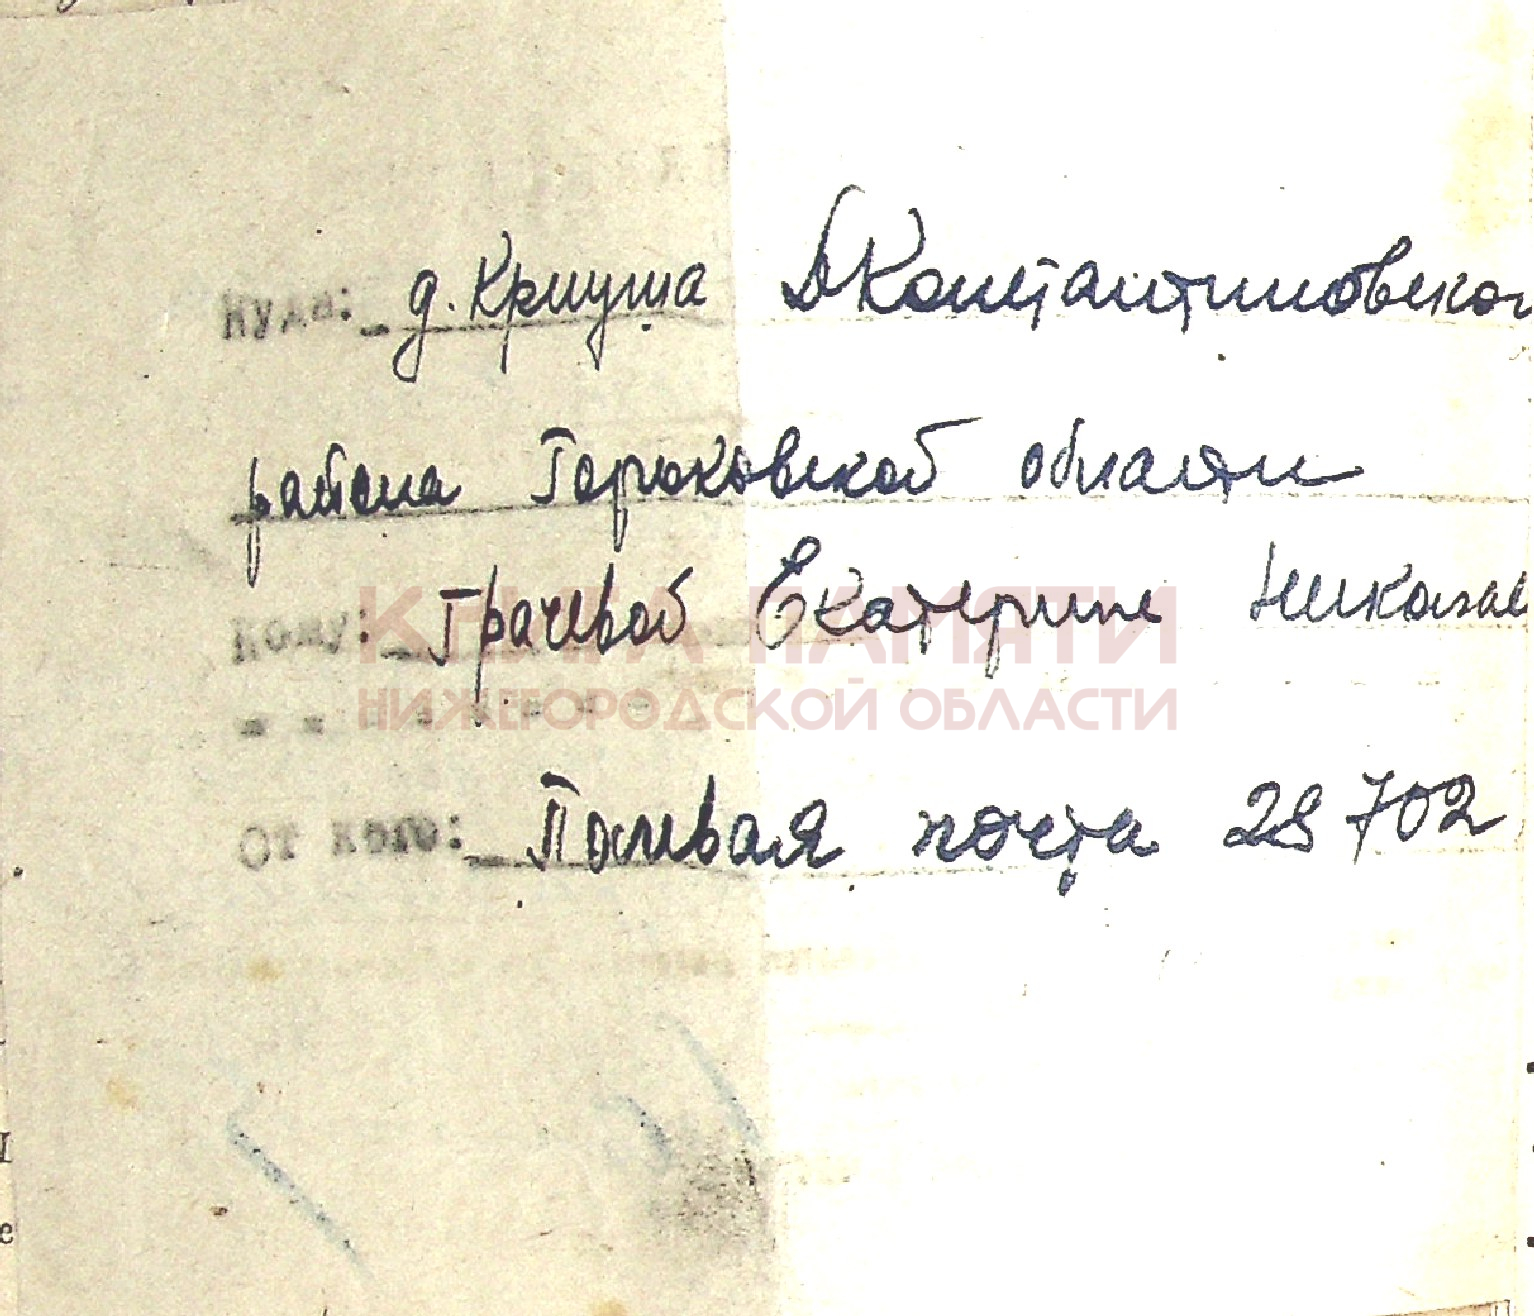 Куда: д. Криуша ДКонстантиновског
района Горьковской области
Кому: Грачевой Екатерине Николае
КНИГА ПАМЯТИ
НИЖЕГОРОДСКОЙ ОБЛАСТИ
От кого: Полевая почта 28702